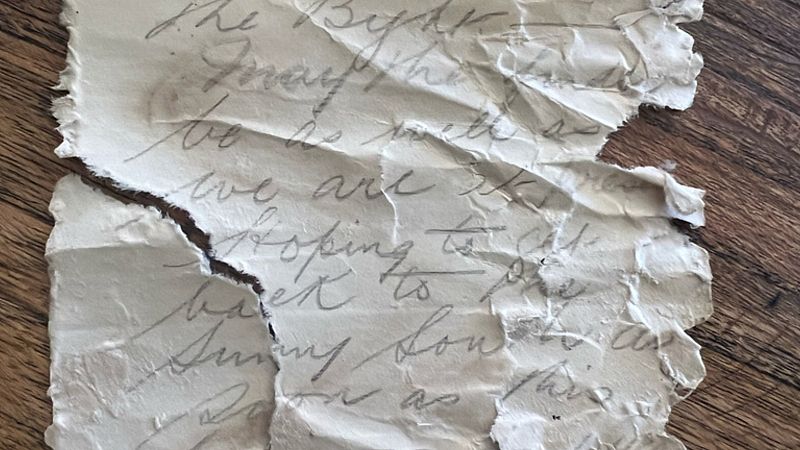 the Byht
May the
be as well as
we are
Hoping to get
back to the
Sunny South as
Soon as this